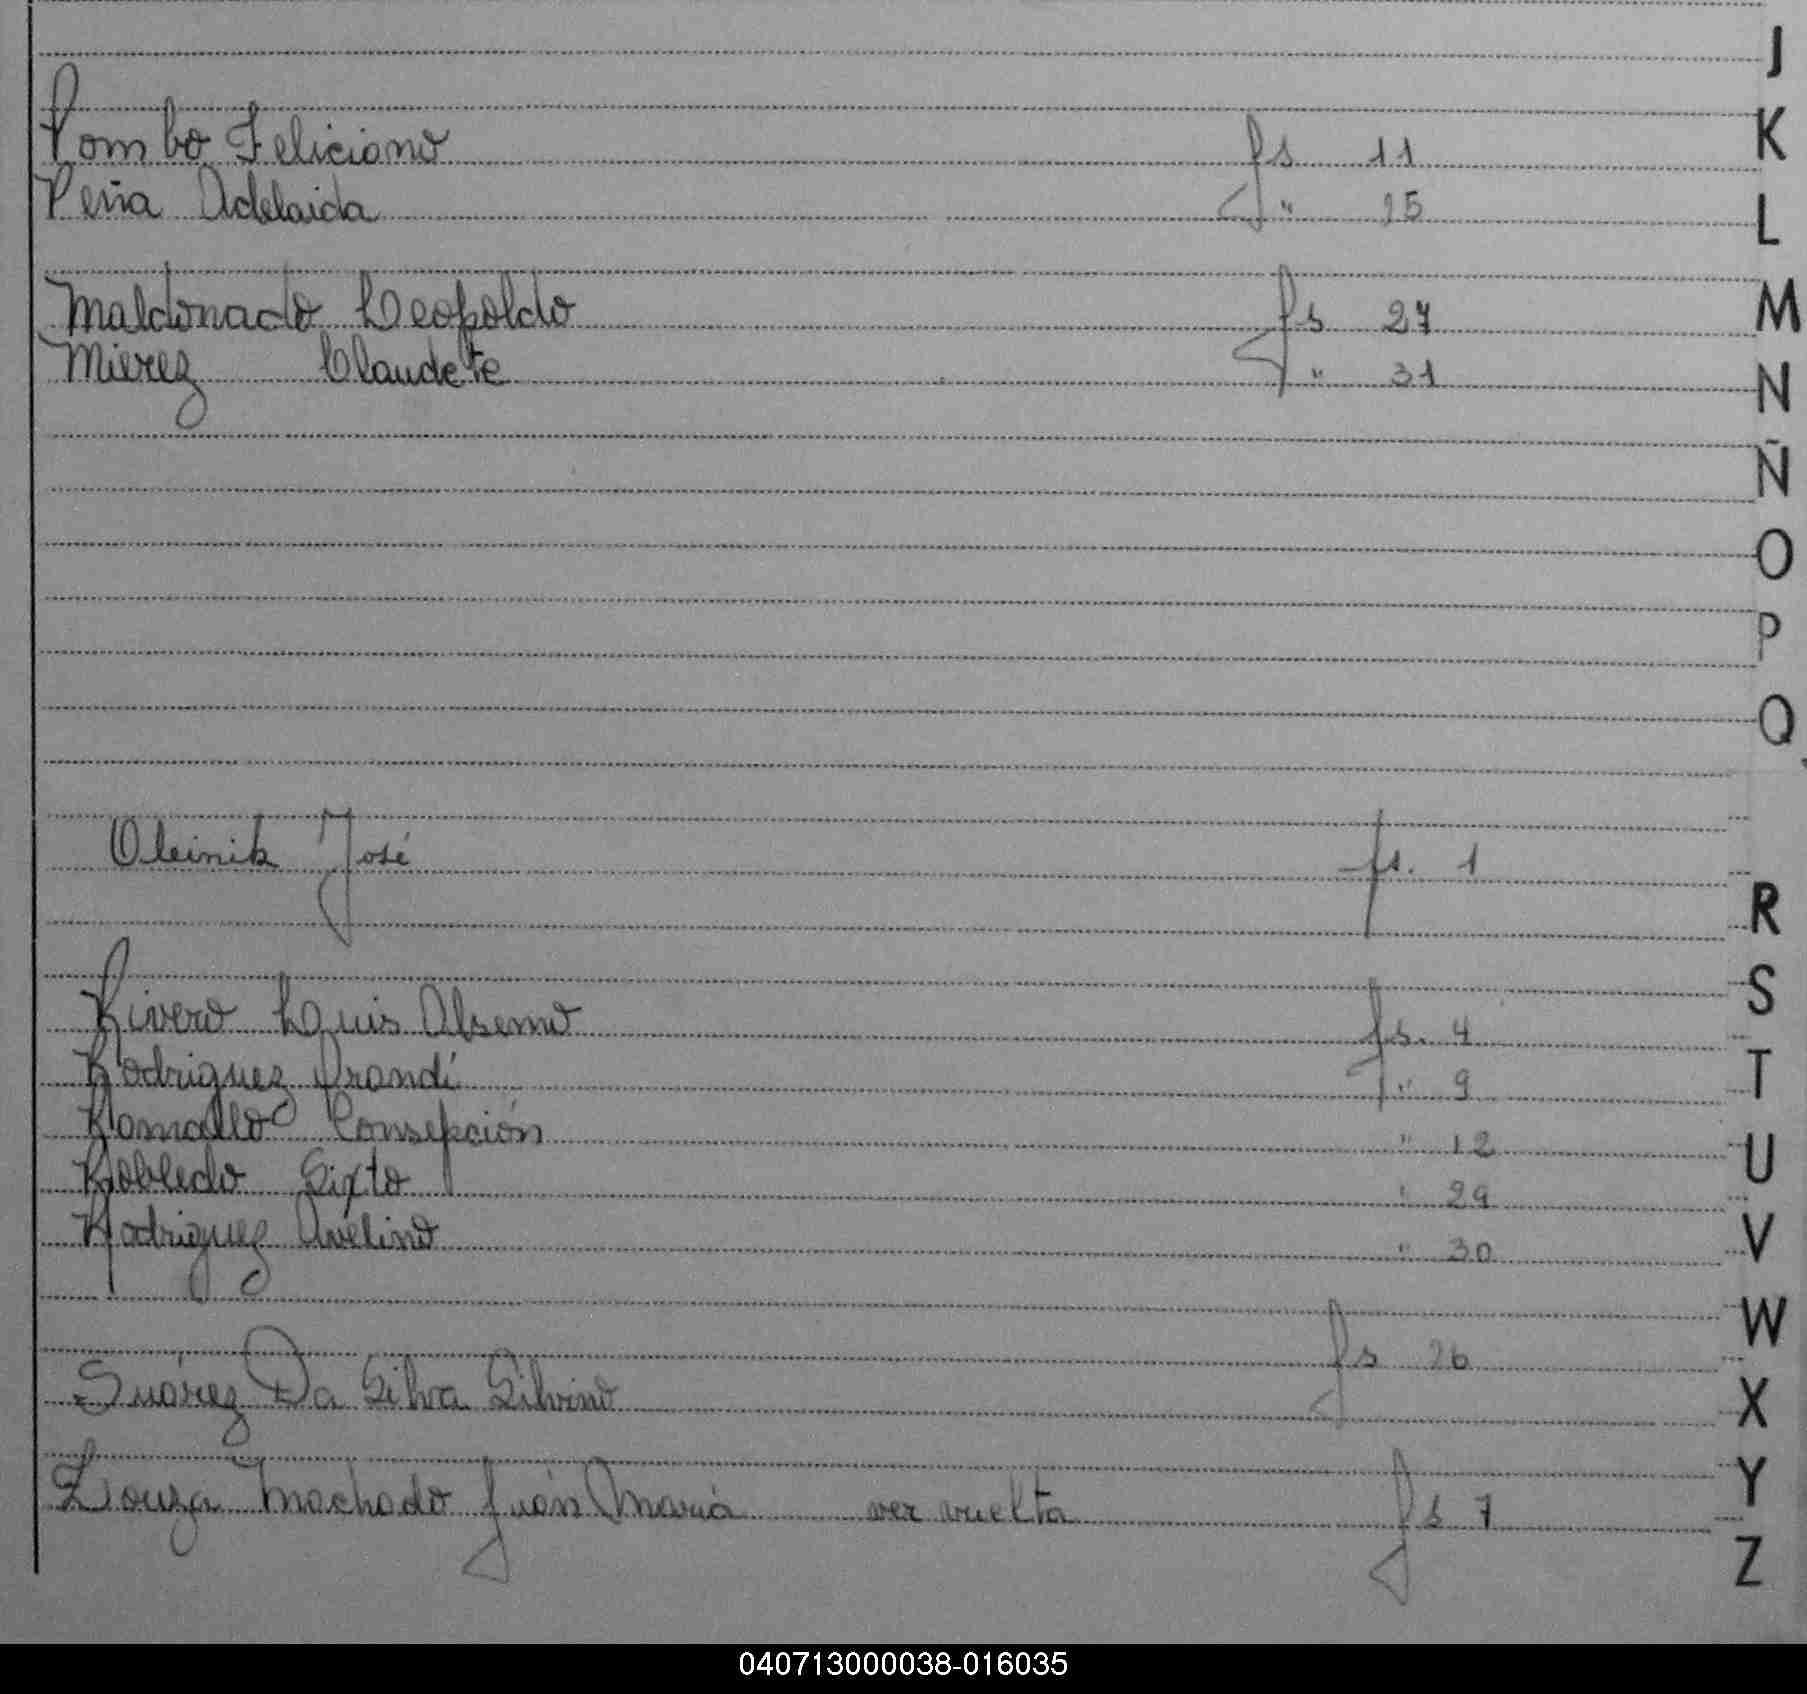 J
Pombo Feliciano fs 11
K
Peña Adelaida " 25
L
Maldonado Leopoldo fs 27
M
Mierez Claudete " 31
N
Ñ
O
P
Q
Oleinik José fs. 1
R
Rivero Luis Absemo fs. 4
S
Rodriguez Prandi " 9
T
Ramallo Consepción " 12
U
Robledo Sixto " 29
Rodriguez Avelino " 30
V
W
Suárez Da Silva Silvino fs 26
X
Zouza Machado Juán María ver vuelta fs 7
Y
Z
040713000038-016035